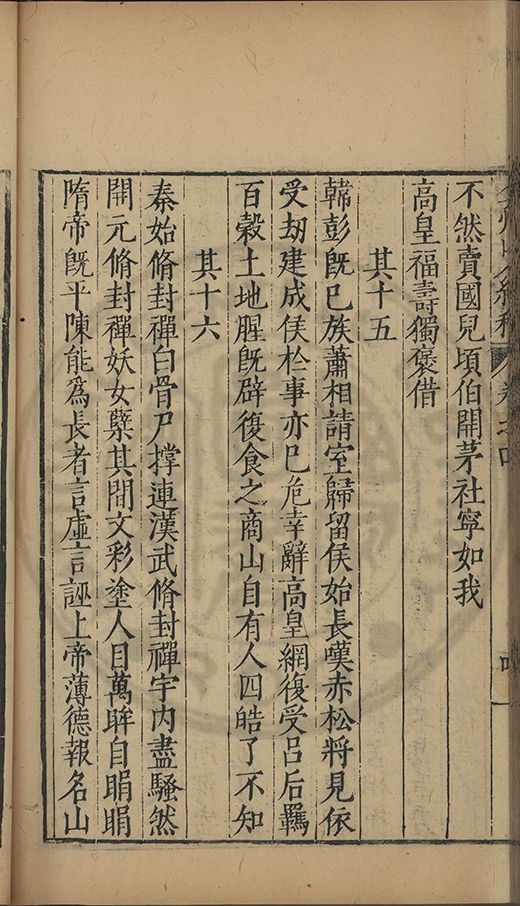 不然賣國兒頃伯開茅社寧如我
高皇福壽獨褒借
其十五
韓彭既已族蕭相請室歸留侯始長嘆赤松將見依
受劫建成侯於事亦已危幸辭高皇網復受呂后羈
百穀土地腥既辟復食之商山自有人四皓了不知
其十六
秦始脩封禪白骨尸撐連漢武脩封禪宇内盡騷然
開元脩封禪妖女孽其間文彩塗人目萬眸自睊睊
隋帝既平陳能爲長者言虛言誣上帝薄德報名山